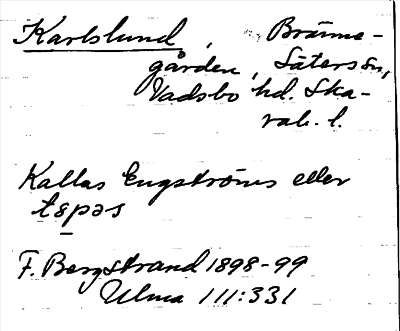 Karlslund, Bränne-
gården, Sätersön,
Vadsbo hd. Ska-
rab. l.
Kallas Engströms eller
tɛpəs
F. Bergstrand 1898-99
Ulma 111:331